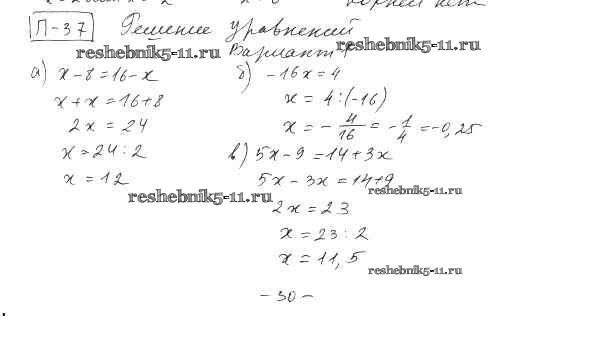 П-37 Решение уравнений
reshebnik5-11.ru Вариант reshebnik5-11.ru
а) x - 8 = 16 - x
x + x = 16 + 8
2x = 24
x = 24 : 2
x = 12
reshebnik5-11.ru
б) -16x = 4
x = 4 : (-16)
x = - 4/16 = - 1/4 = -0,25
в) 5x - 9 = 14 + 3x
5x - 3x = 14 + 9
reshebnik5-11.ru
2x = 23
x = 23 : 2
x = 11,5
reshebnik5-11.ru
- 30 -